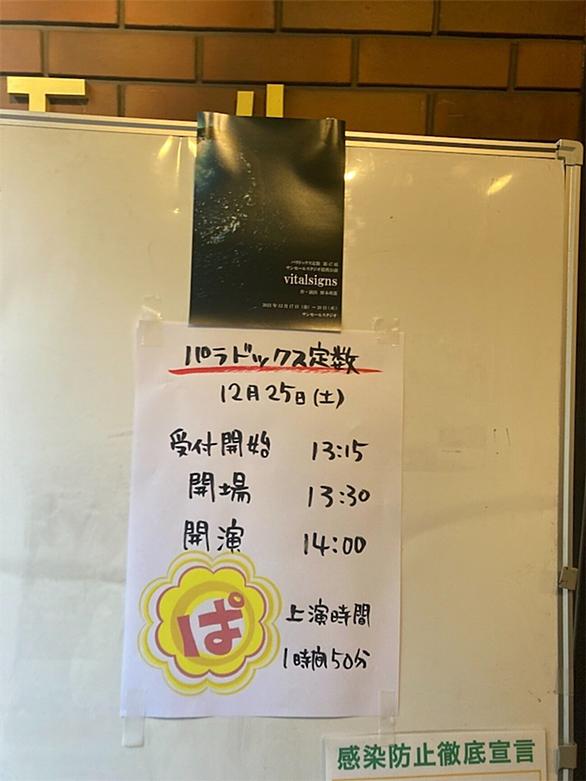 パラドックス定数 第47項
サンモールスタジオ提携公演
vitalsigns
サンモールスタジオ
パラドックス定数
12月25日(土)
受付開始 13:15
開場 13:30
開演 14:00
ぱ
上演時間
1時間50分
感染防止徹底宣言